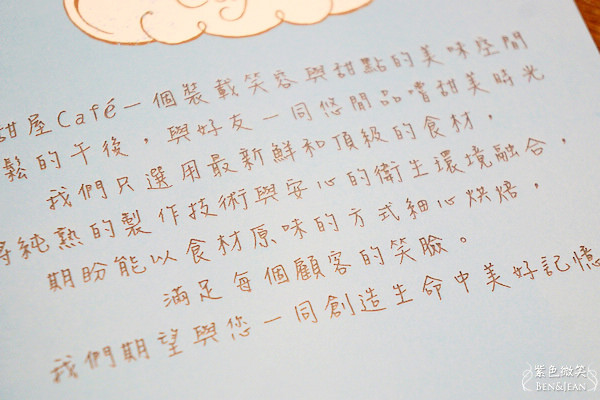 甜屋Café一個裝載笑容與甜點的美味空間
鬆的午後，與好友一同悠閒品嚐甜美時光
我們只選用最新鮮和頂級的食材，
將純熟的製作技術與安心的衛生環境融合，
期盼能以食材原味的方式細心烘焙，
滿足每個顧客的笑臉。
我們期望與您一同創造生命中美好記憶
紫色微笑
BEN&JEAN